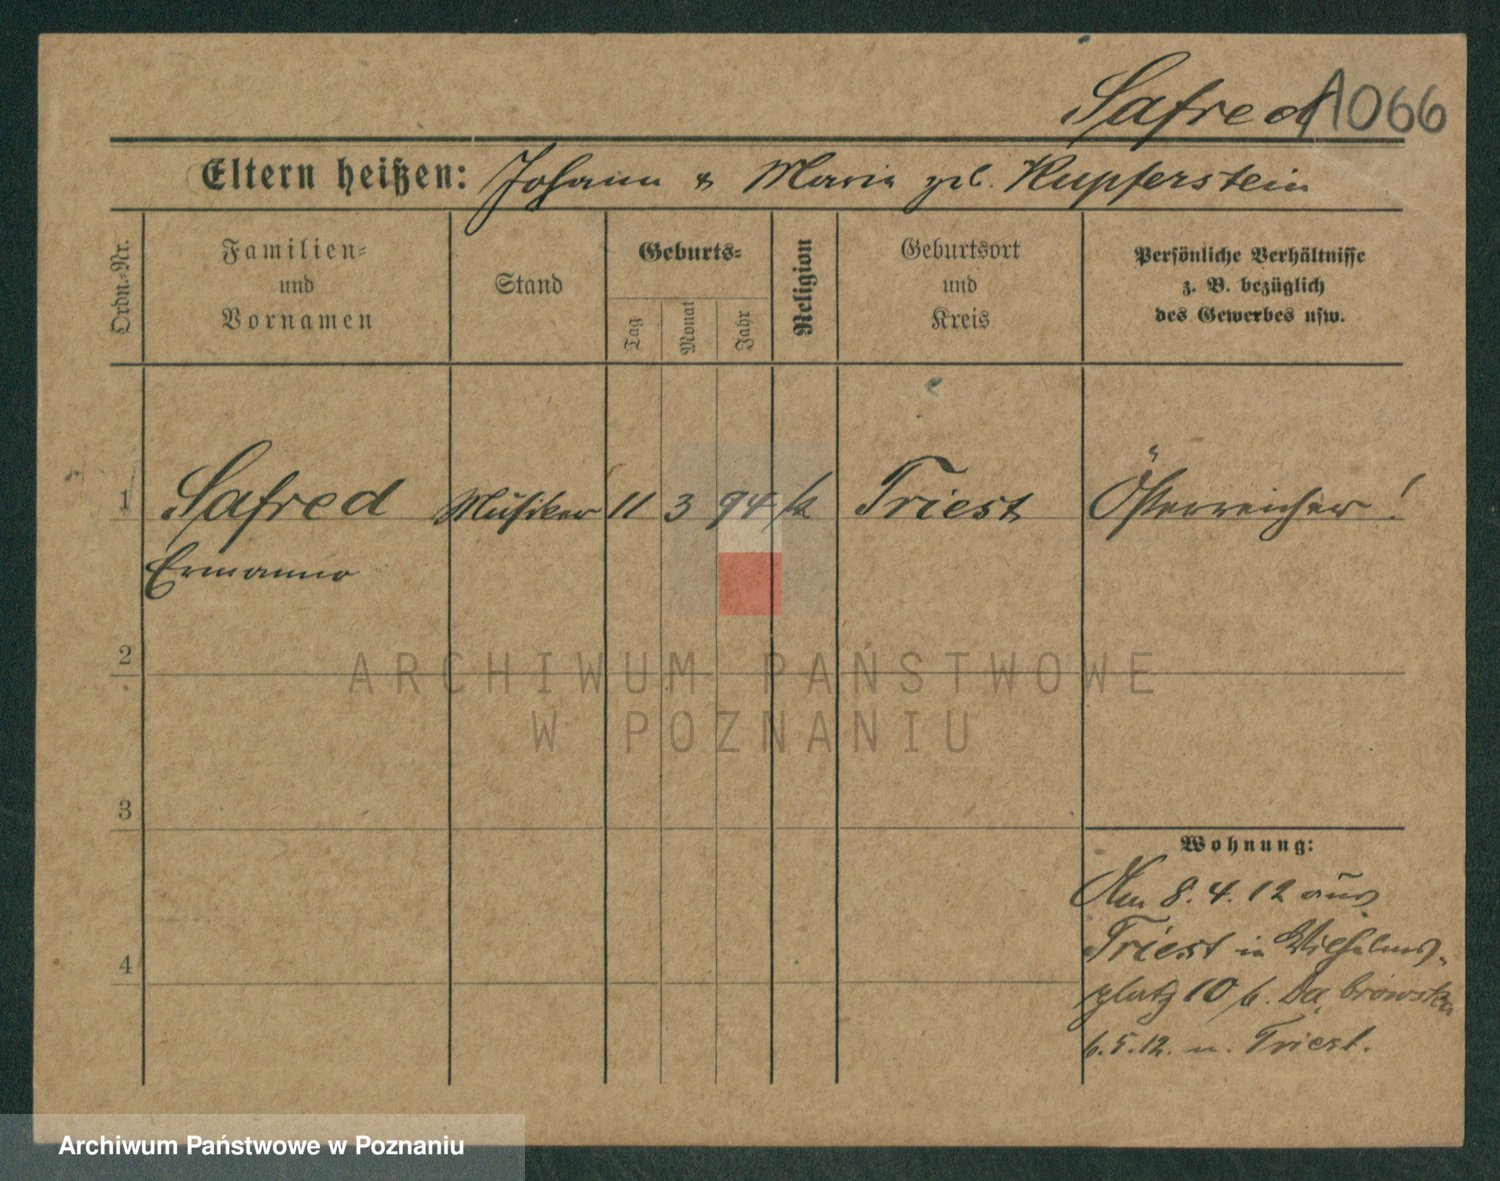 Safred 1066
Eltern heißen: Johann & Maria geb. Kupferstein
Ordn.-Nr.
Familien-
und
Vornamen
Stand
Geburts-
Tag
Monat
Jahr
Religion
Geburtsort
und
Kreis
Persönliche Verhältnisse
z. B. bezüglich
des Gewerbes usw.
1 Safred Musiker 11 3 94 k Triest Österreicher!
Ermanno
2
3
4
Wohnung:
Am 8.4.12 aus
Triest in Wilhelms-
platz 10 b. Dąbrowska
6.5.12. n. Triest.
ARCHIWUM PAŃSTWOWE
W POZNANIU
Archiwum Państwowe w Poznaniu